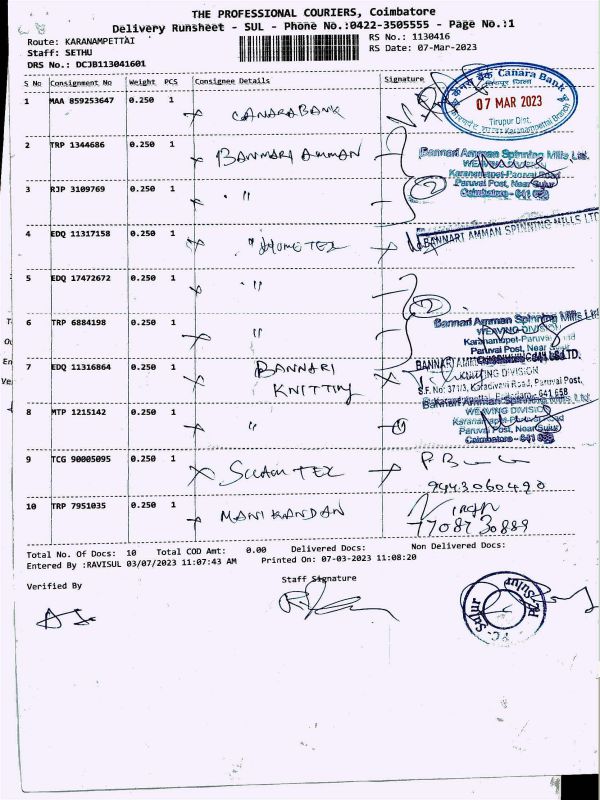 THE PROFESSIONAL COURIERS, Coimbatore
Delivery Runsheet - SUL - Phone No.:0422-3505555 - Page No.:1
Route: KARANAMPETTAI
Staff: SETHU
DRS No.: DCJB113041601
RS No.: 1130416
RS Date: 07-Mar-2023
S No Consignment No Weight PCS Consignee Details Signature
1 MAA 859253647 0.250 1 CANARA BANK
Canara Bank
07 MAR 2023
Tirupur Dist.
Karanampettai Branch
2 TRP 1344686 0.250 1 BANNARI AMMAN
Bannari Amman Spinning Mills Ltd.
WEAVING DIVISION
Karanampet-Paruvai Road
Paruvai Post, Near Sulur
Coimbatore - 641 658
3 RJP 3109769 0.250 1 " 2
4 EDQ 11317158 0.250 1 " HOME TEX
BANNARI AMMAN SPINNING MILLS LTD
5 EDQ 17472672 0.250 1 "
2
6 TRP 6884198 0.250 1 "
Bannari Amman Spinning Mills Ltd.
WEAVING DIVISION
Karanampet-Paruvai Road
Paruvai Post, Near Sulur
7 EDQ 11316864 0.250 1 BANNARI
KNITTING
KNITTING DIVISION
S.F. No: 371/3, Karadivavi Road, Paruvai Post,
8 MTP 1215142 0.250 1 " 1
Bannari Amman Spinning Mills Ltd.
WEAVING DIVISION
Karanampet-Paruvai Road
Paruvai Post, Near Sulur
Coimbatore - 641 658
9 TCG 90005095 0.250 1
9443060490
10 TRP 7951035 0.250 1 MANIKANDAN
7708730889
Total No. Of Docs: 10 Total COD Amt: 0.00 Delivered Docs: Non Delivered Docs:
Entered By :RAVISUL 03/07/2023 11:07:43 AM Printed On: 07-03-2023 11:08:20
Verified By
Staff Signature
Sulur